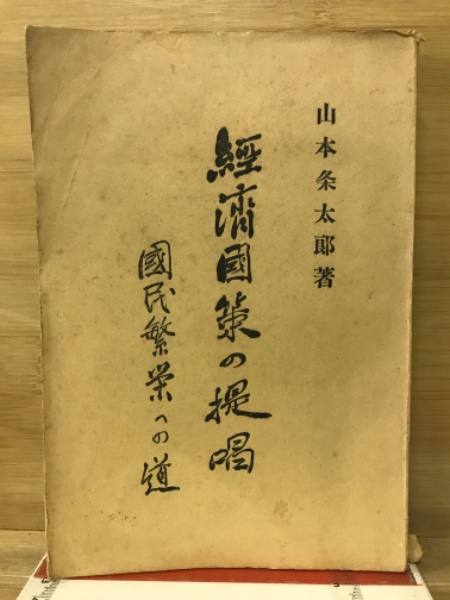 山本条太郎著
經済國策の提唱
國民繁栄への道